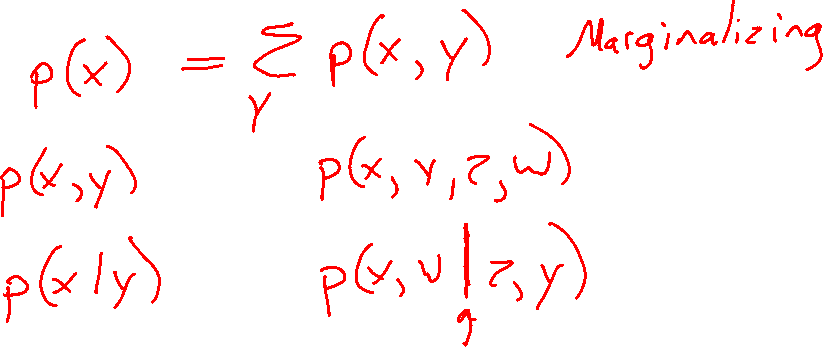 p(x) = Σ_y p(x, y) Marginalizing
p(x, y) p(x, y, z, w)
p(x | y) p(x, w | z, y)